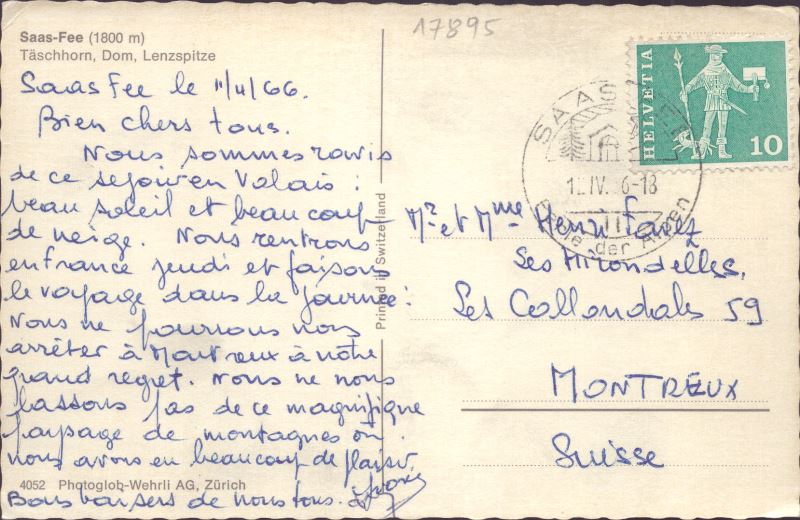 17895
Saas-Fee (1800 m)
Täschhorn, Dom, Lenzspitze
Saas Fee le 11/4/66.
Bien chers tous.
Nous sommes ravis
de ce séjour en Valais :
beau soleil et beaucoup
de neige. Nous rentrons
en France jeudi et faisons
le voyage dans la journée :
Nous ne pourrons nous
arrêter à Montreux à notre
grand regret. Nous ne nous
lassons pas de ce magnifique
paysage de montagnes où
nous avons eu beaucoup de plaisir.
Bons baisers de nous tous.
4052 Photoglob-Wehrli AG, Zürich
Printed in Switzerland
HELVETIA
10
SAAS-FEE
12.IV. 6-18
Perle der Alpen
Mr et Mme Henri
Les Hirondelles,
Les Collondales 59
MONTREUX
Suisse